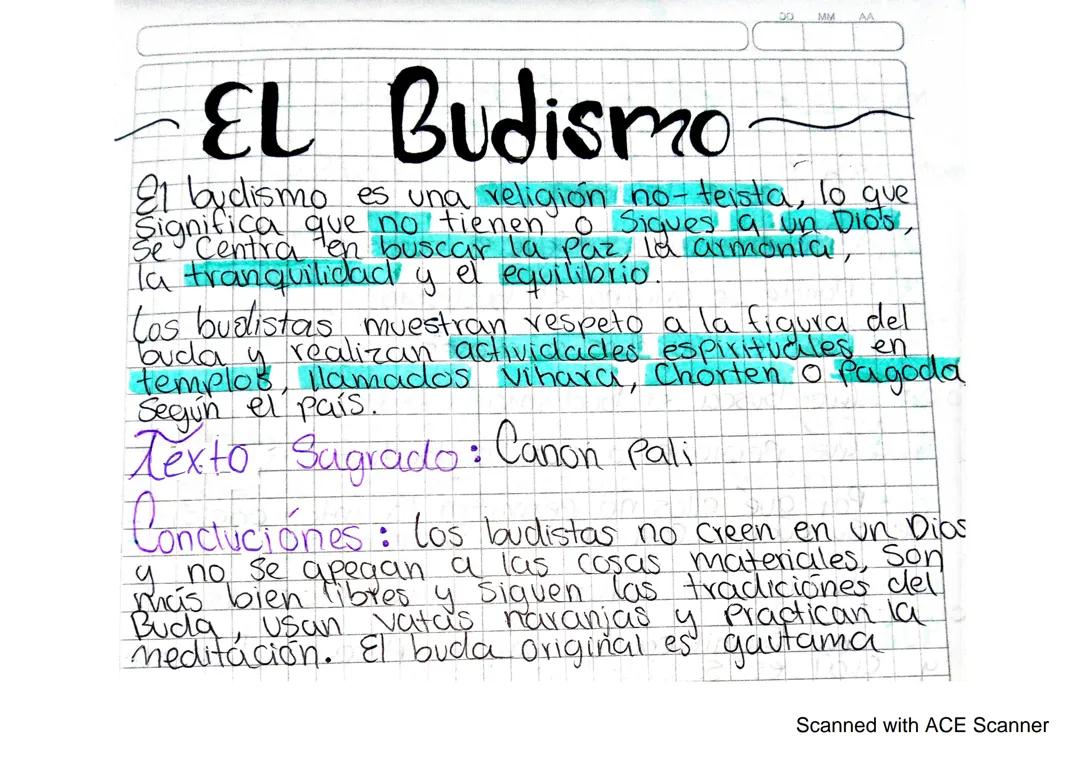 DD MM AA
EL Budismo
El budismo es una religión no-teista, lo que
significa que no tienen o Sigues a un Dios,
se Centra en buscar la Paz, la armonía,
la tranquilidad y el equilibrio.
Los budistas muestran respeto a la figura del
buda y realizan actividades espirituales en
templos, llamados vihara, Chorten o Pagoda
Según el país.
Texto Sagrado: Canon Pali
Concluciónes: Los budistas no creen en un Dios
y no se apegan a las cosas materiales, Son
más bien libres y Siguen las tradiciónes del
Buda, usan vatas naranjas y Practican la
meditación. El buda original es gautama
Scanned with ACE Scanner